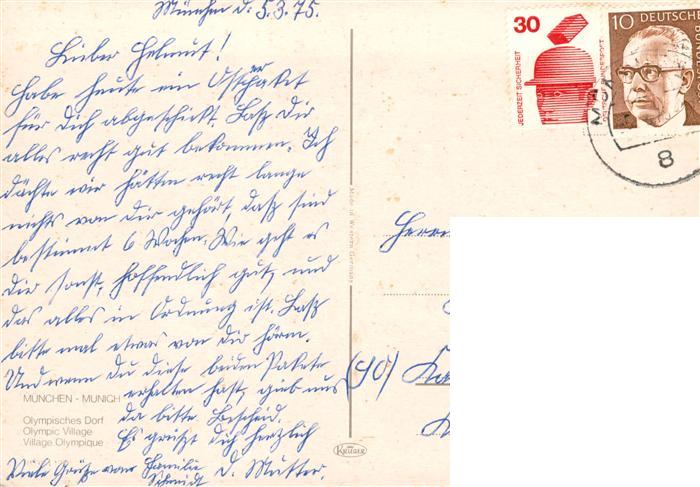 München d. 5.3.75.
Lieber Helmut!
Habe heute ein Osterpaket
für Dich abgeschickt. Lass Dir
alles recht gut bekommen. Ich
dächte wir hätten recht lange
nichts von Dir gehört, dass sind
bestimmt 6 Wochen. Wie geht es
Dir sonst, hoffendlich gut, und
das alles in Ordnung ist. Lass
bitte mal etwas von dir hören.
Und wenn du diese beiden Pakete
erhalten hast, gieb uns
da bitte Bescheid.
Es grüsst dich herzlich
d. Mutter.
Viele Grüße von Familie
Schmidt
MÜNCHEN - MUNICH
Olympisches Dorf
Olympic Village
Village Olympique
Made in Western Germany
KRÜGER
30
JEDERZEIT SICHERHEIT
10 DEUTSCHE
8
Herrn